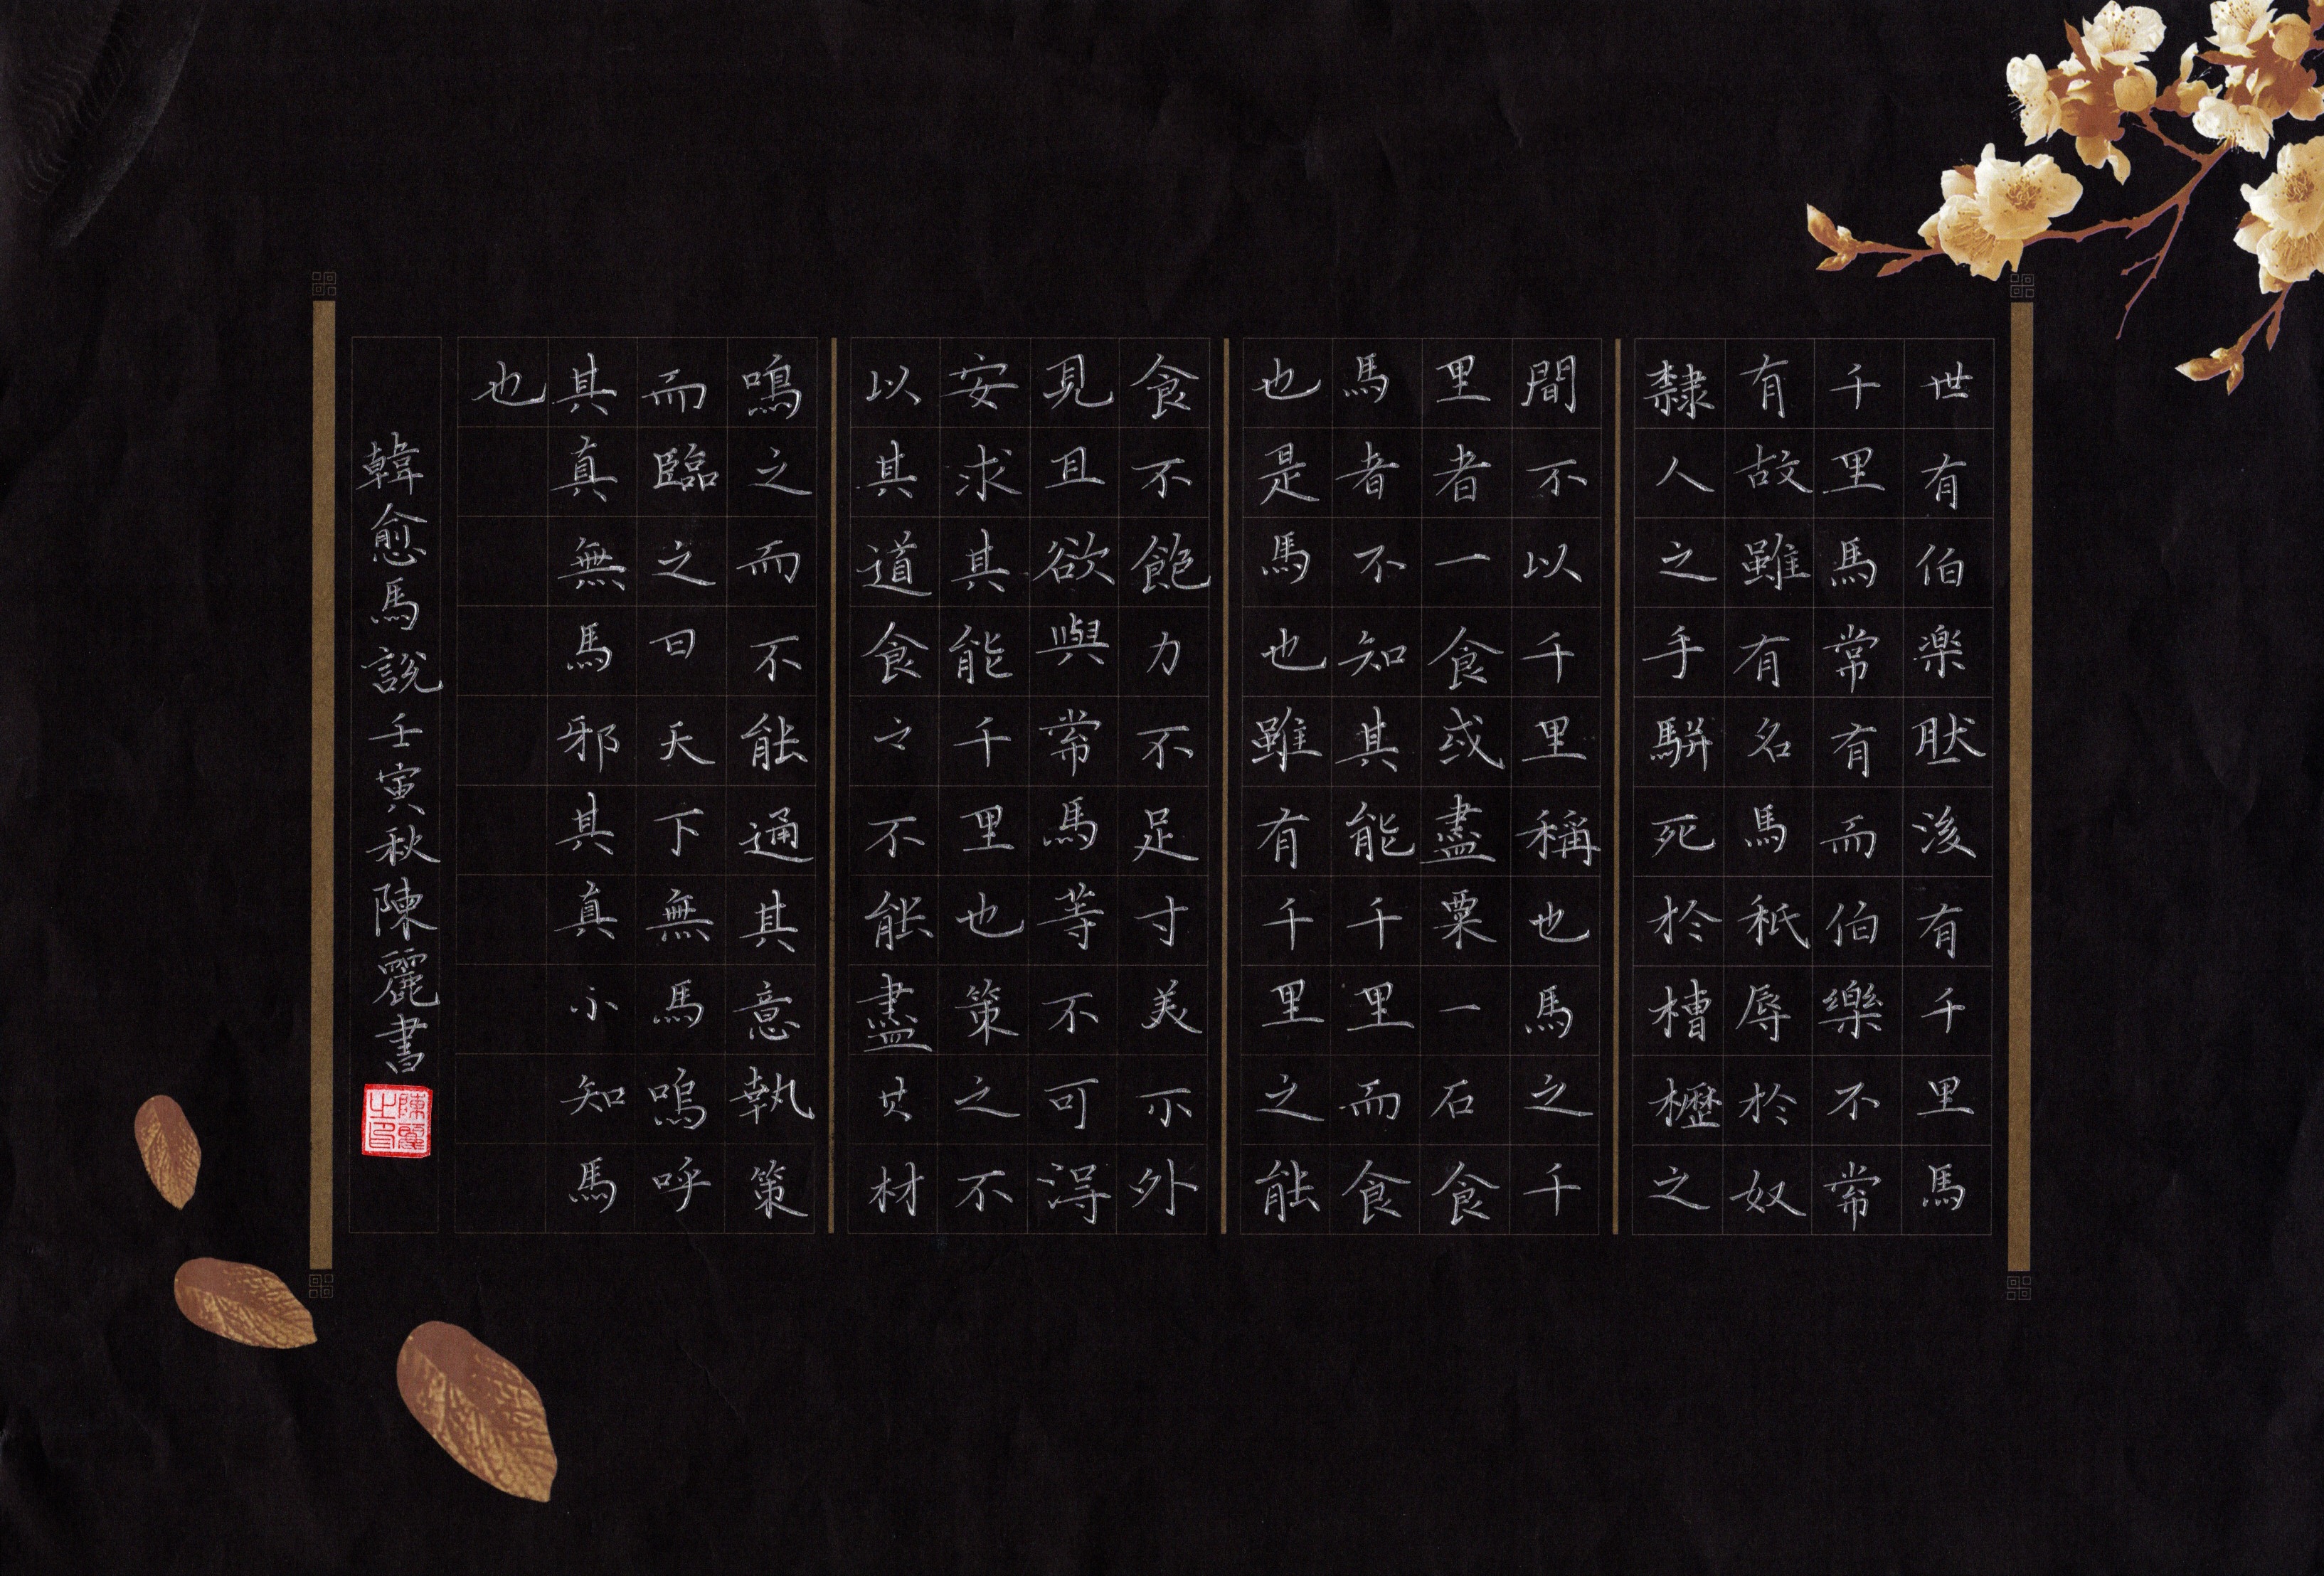 世有伯楽然後有千里馬
千里馬常有而伯樂不常
有故雖有名馬秖辱於奴
隸人之手駢死於槽櫪之
間不以千里稱也馬之千
里者一食或盡粟一石食
馬者不知其能千里而食
也是馬也雖有千里之能
食不飽力不足才美不外
見且欲與常馬等不可得
安求其能千里也策之不
以其道食之不能盡其材
鳴之而不能通其意執策
而臨之曰天下無馬嗚呼
其真無馬邪其真不知馬
也
韓愈馬說壬寅秋陳麗書
陳麗之印